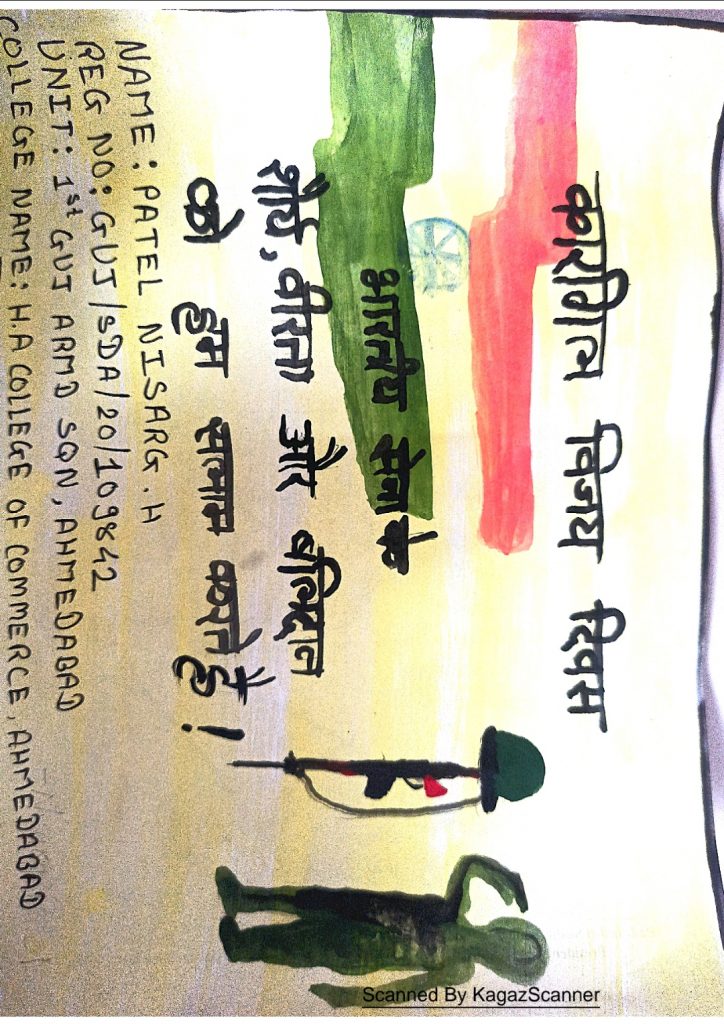 कारगिल विजय दिवस
भारतीय सेना के
शौर्य, वीरता और बलिदान
को हम सलाम करते है !
NAME : PATEL NISARG . H
REG NO : GUJ / SDA / 20 / 109842
UNIT : 1st GUJ ARMD SQN , AHMEDABAD
COLLEGE NAME : H.A COLLEGE OF COMMERCE , AHMEDABAD
Scanned By KagazScanner